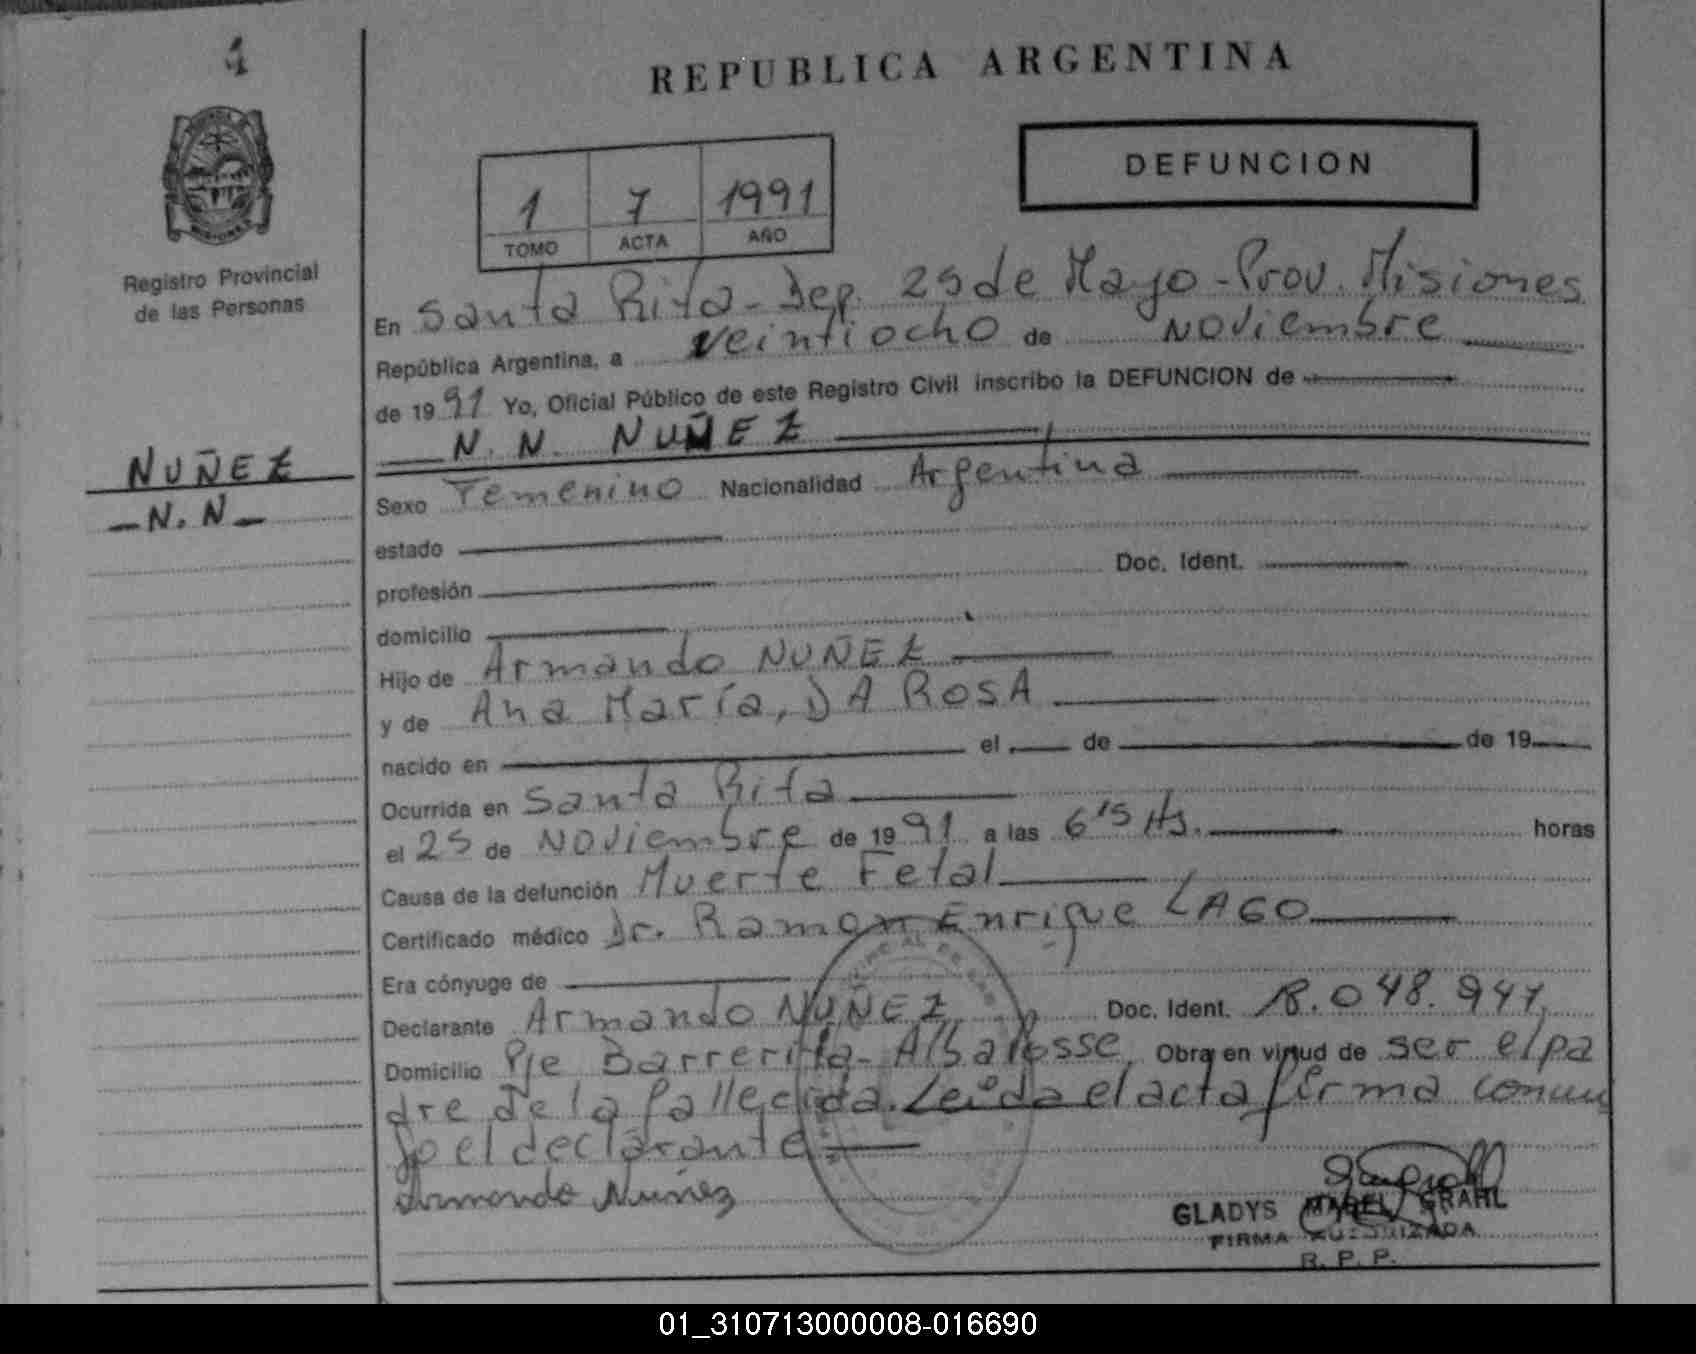 1
REPUBLICA ARGENTINA
DEFUNCION
1 7 1991
TOMO ACTA AÑO
Registro Provincial
de las Personas
En Santa Rita - Dep. 25 de Mayo - Prov. Misiones
República Argentina, a veintiocho de Noviembre
de 1991 Yo, Oficial Público de este Registro Civil inscribo la DEFUNCION de
N. N. NUÑEZ
NUÑEZ
- N. N -
Sexo Femenino Nacionalidad Argentina
estado
profesión Doc. Ident.
domicilio
Hijo de Armando NUÑEZ
y de Ana María, DA ROSA
nacido en el de de 19
Ocurrida en Santa Rita
el 25 de Noviembre de 1991 a las 6'15 Hs. horas
Causa de la defunción Muerte Fetal
Certificado médico Dr. Ramon Enrique LAGO
Era cónyuge de
Declarante Armando NUÑEZ Doc. Ident. 18.048.947,
Domicilio Pje Barrerita - Obra en virtud de ser el pa
dre de la fallecida. Leída el acta firma conmi
go el declarante.
Armando Nuñez
GLADYS MABEL GRAHL
FIRMA AUTORIZADA
R. P. P.
01_310713000008-016690